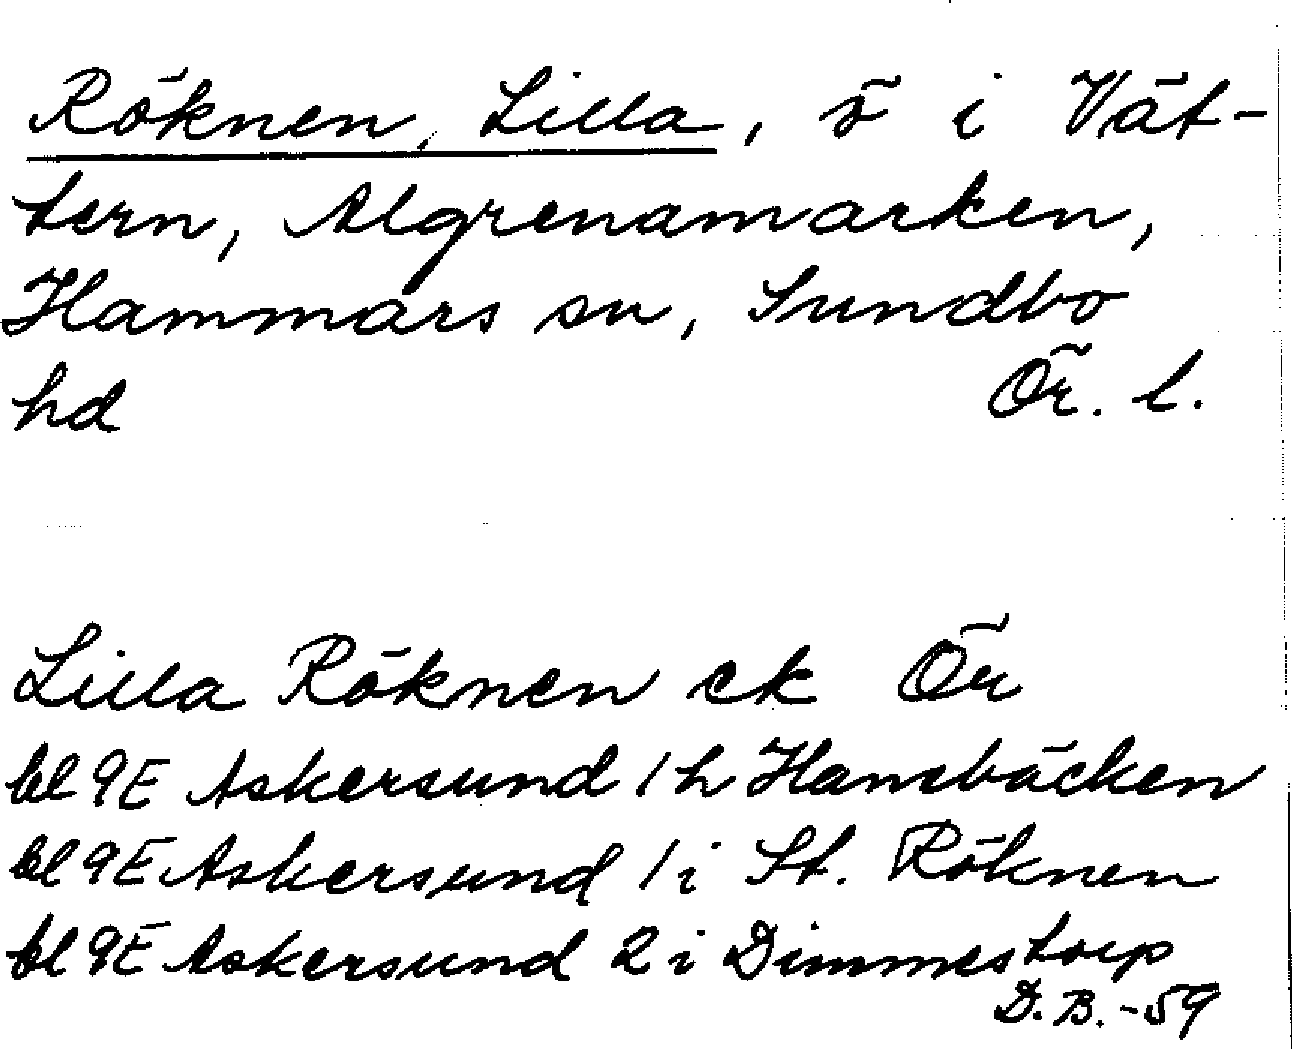 Röknen, Lilla, ö i Vät-
tern, Algrenamarken,
Hammars sn, Sundbo
hd Ör. l.
Lilla Röknen ek Ör
bl 9E Askersund 1 h Hansbäcken
bl 9E Askersund 1 i St. Röknen
bl 9E Askersund 2 i Dimmestorp
D.B.-59